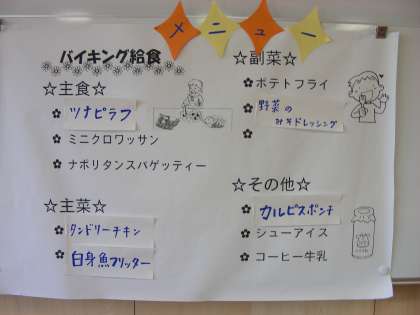 メニュー
バイキング給食
☆主食☆
ツナピラフ
ミニクロワッサン
ナポリタンスパゲッティー
☆主菜☆
タンドリーチキン
白身魚フリッター
☆副菜☆
ポテトフライ
野菜の
みそドレッシング
☆その他☆
カルピスポンチ
シューアイス
コーヒー牛乳